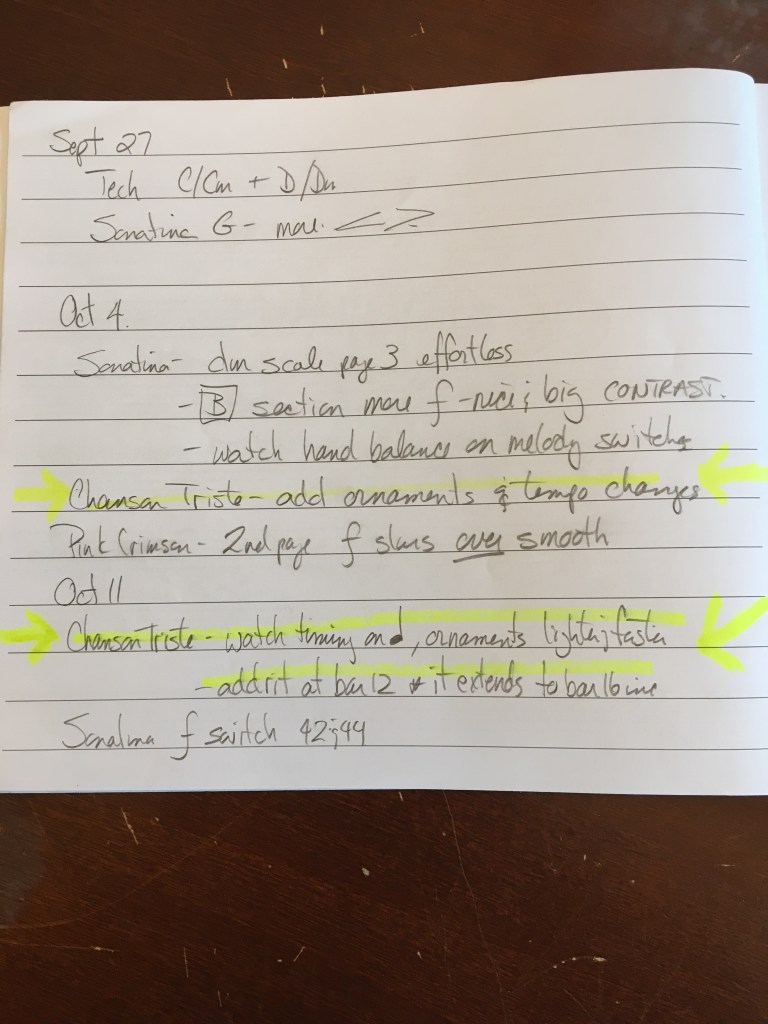 Sept 27
Tech C/Cm + D/Dm
Sonatina G - more < >
Oct 4.
Sonatina - dim scale page 3 effortless
- B section more f - nice & big CONTRAST.
- watch hand balance on melody switches
Chanson Triste - add ornaments & tempo changes
Pink Crimson - 2nd page f slurs over smooth
Oct 11
Chanson Triste - watch timing and, ornaments lighter & faster
- add rit at bar 12 + it extends to bar 16 inc
Sonatina f switch 42 & 44